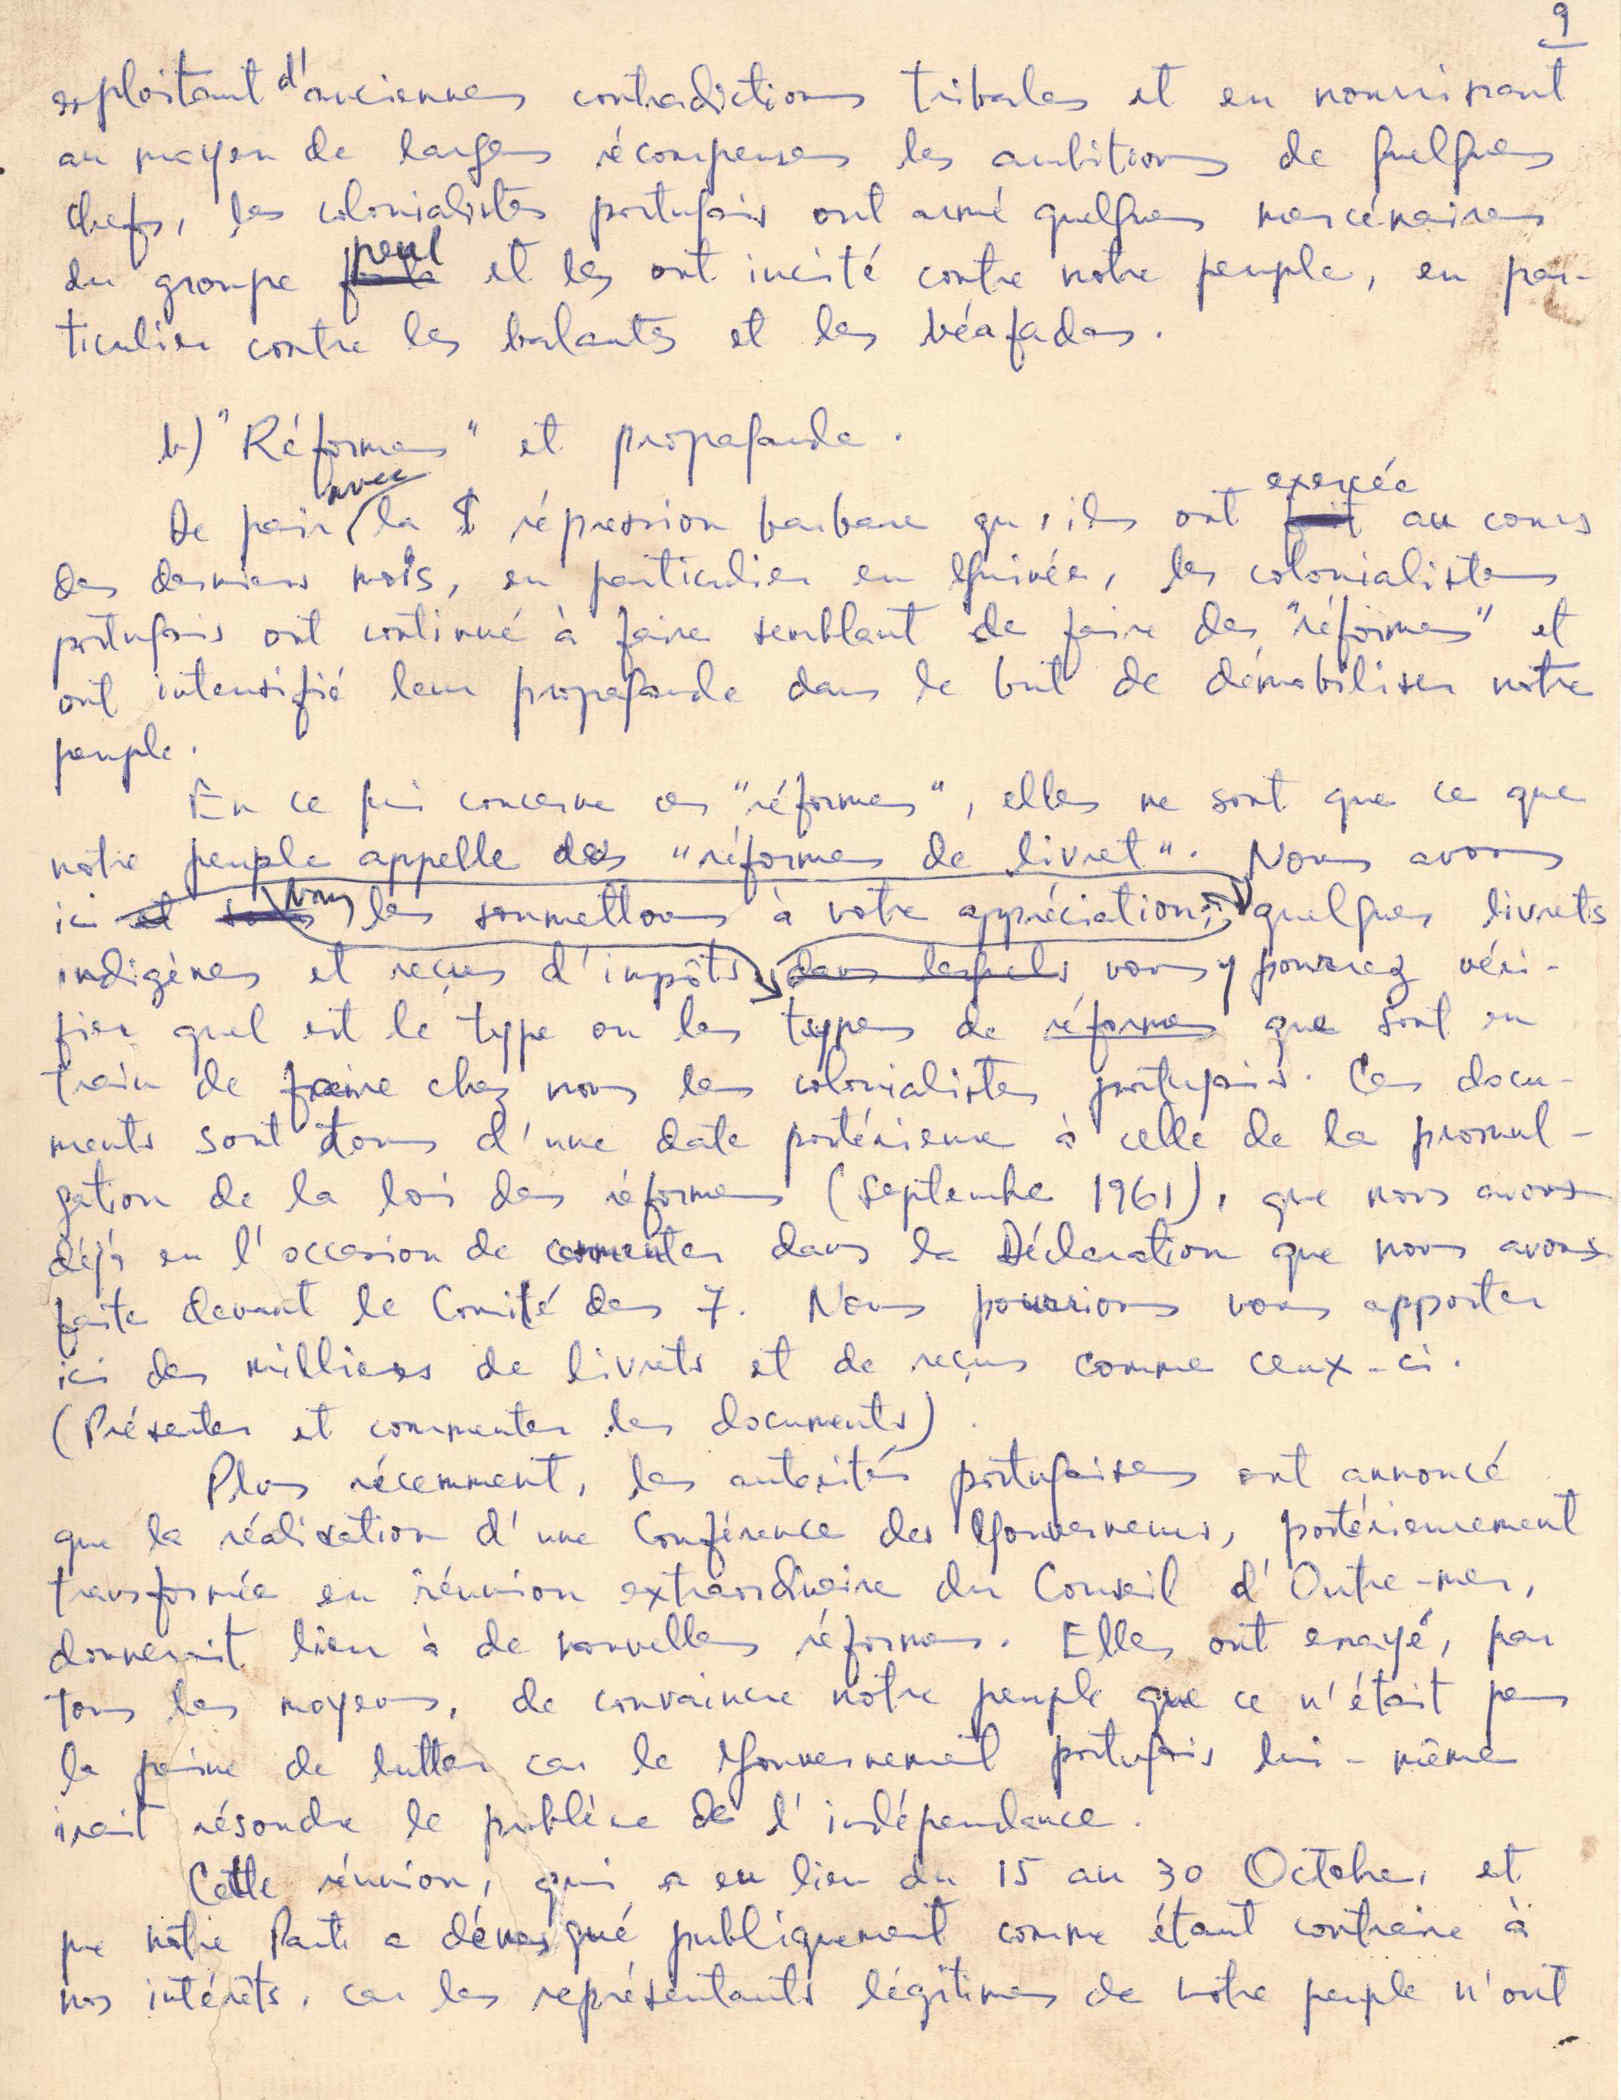 9
exploitant d'anciennes contradictions tribales et en nourrissant
au moyen de larges récompenses les ambitions de quelques
chefs, les colonialistes portugais ont armé quelques mercénaires
du groupe peul et les ont incité contre notre peuple, en par-
ticulier contre les balantes et les béafadas.
b) "Réformes" et propagande.
De pair avec la répression barbare qu'ils ont exercée au cours
des derniers mois, en particulier en Guinée, les colonialistes
portugais ont continué à faire semblant de faire des "réformes" et
ont intensifié leur propagande dans le but de démobiliser notre
peuple.
En ce qui concerne ces "réformes", elles ne sont que ce que
notre peuple appelle des "réformes de livret". Nous avons
ici et vous les soumettons à votre appréciation, quelques livrets
indigènes et reçus d'impôts, dans lesquels vous y pourrez véri-
fier quel est le type ou les types de réformes que sont en
train de faire chez nous les colonialistes portugais. Ces docu-
ments sont tous d'une date postérieure à celle de la promul-
gation de la loi des réformes (Septembre 1961), que nous avons
déjà eu l'occasion de commenter dans la Déclaration que nous avons
faite devant le Comité des 7. Nous pourrions vous apporter
ici des milliers de livrets et de reçus comme ceux-ci.
(Présenter et commenter les documents).
Plus récemment, les autorités portugaises ont annoncé
que la réalisation d'une Conférence des Gouverneurs, postérieurement
transformée en réunion extraordinaire du Conseil d'Outre-mer,
donnerait lieu à de nouvelles réformes. Elles ont essayé, par
tous les moyens, de convaincre notre peuple que ce n'était pas
la peine de lutter car le Gouvernement portugais lui-même
irait résoudre le problème de l'indépendance.
Cette réunion, qui a eu lieu du 15 au 30 Octobre, et
que notre Parti a démasqué publiquement comme étant contraire à
nos intérêts, car les représentants légitimes de notre peuple n'ont